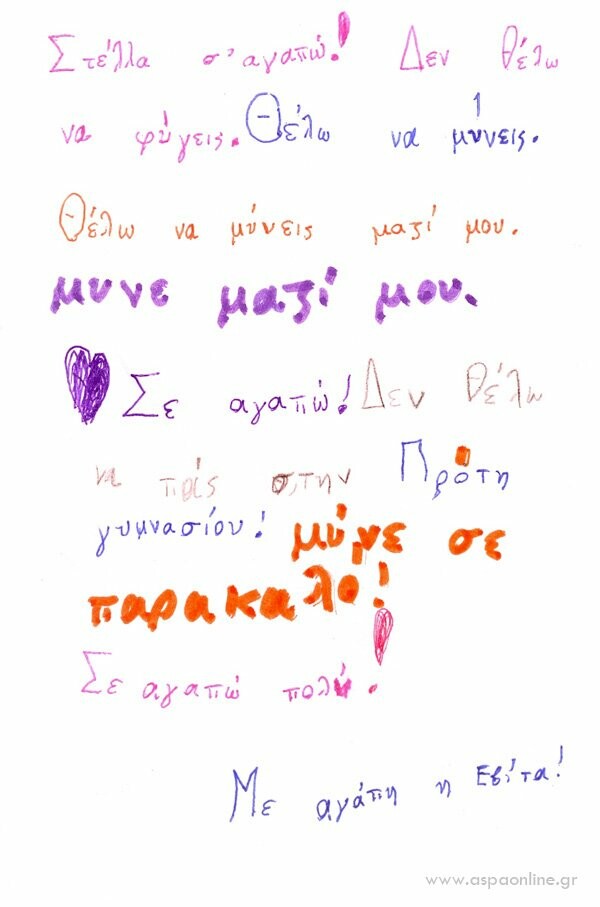 Στέλλα σ'αγαπώ! Δεν θέλω
να φύγεις. Θέλω να μύνεις.
Θέλω να μύνεις μαζί μου.
μυνε μαζί μου.
Σε αγαπώ! Δεν θέλω
να πάς στην Πρότη
γυμνασίου! μύνε σε
παρακαλο!
Σε αγαπώ πολύ!
Με αγάπη η Εβίτα!
www.aspaonline.gr